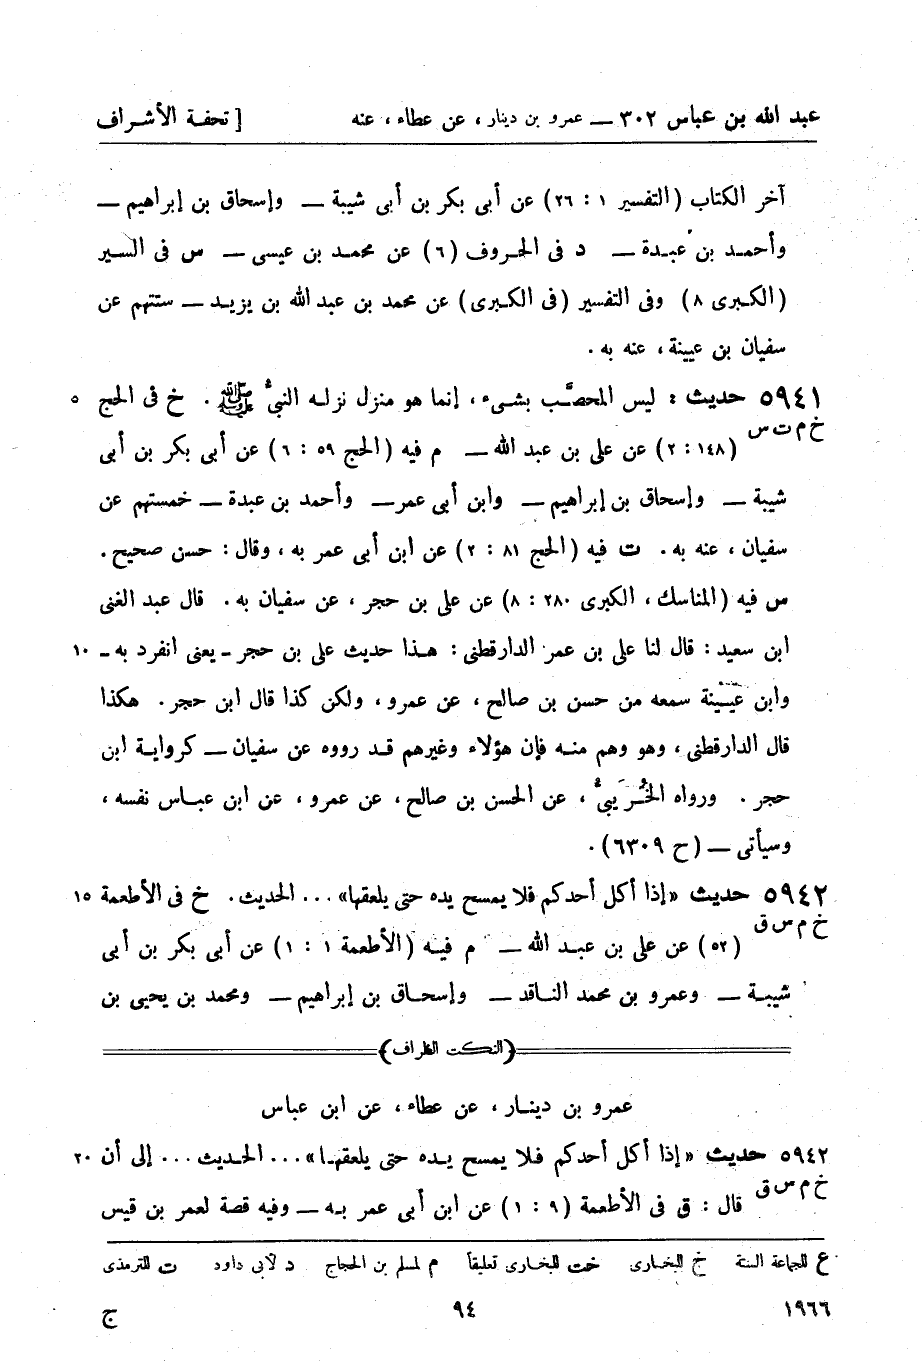 عبد الله بن عباس ٣٠٢ — عمرو بن دينار، عن عطاء، عنه [ تحفة الأشراف
آخر الكتاب (التفسير ١ : ٢٦) عن أبى بكر بن أبى شيبة — وإسحاق بن إبراهيم —
وأحمد بن عبدة — د فى الحروف (٦) عن محمد بن عيسى — س فى السير
(الكبرى ٨) وفى التفسير (فى الكبرى) عن محمد بن عبد الله بن يزيد — ستتهم عن
سفيان بن عيينة، عنه به.
٥٩٤١ حديث : ليس المحصَّب بشىء، إنما هو منزل نزله النبىُّ ﷺ . خ فى الحج ٥
خ م ت س (١٤٨ : ٢) عن على بن عبد الله — م فيه (الحج ٥٩ : ٦) عن أبى بكر بن أبى
شيبة — وإسحاق بن إبراهيم — وابن أبى عمر — وأحمد بن عبدة — خمستهم عن
سفيان، عنه به. ت فيه (الحج ٨١ : ٢) عن ابن أبى عمر به، وقال : حسن صحيح.
س فيه (المناسك، الكبرى ٢٨٠ : ٨) عن على بن حجر، عن سفيان به. قال عبد الغنى
ابن سعيد : قال لنا على بن عمر الدارقطنى : هذا حديث على بن حجر - يعنى انفرد به - ١٠
وابن عيينة سمعه من حسن بن صالح، عن عمرو، ولكن كذا قال ابن حجر. هكذا
قال الدارقطنى، وهو وهم منه فإن هؤلاء وغيرهم قد رووه عن سفيان — كرواية ابن
حجر. ورواه الخُرَيبىُّ، عن الحسن بن صالح، عن عمرو، عن ابن عباس نفسه،
وسيأتى — (ح ٦٣٠٩).
٥٩٤٢ حديث «إذا أكل أحدكم فلا يمسح يده حتى يلعقها» ... الحديث. خ فى الأطعمة ١٥
خ م س ق (٥٢) عن على بن عبد الله — م فيه (الأطعمة ١ : ١) عن أبى بكر بن أبى
شيبة — وعمرو بن محمد الناقد — وإسحاق بن إبراهيم — ومحمد بن يحيى بن
(النكت الظراف)
عمرو بن دينار، عن عطاء، عن ابن عباس
٥٩٤٢ حديث «إذا أكل أحدكم فلا يمسح يده حتى يلعقها» ... الحديث ... إلى أن ٢٠
خ م س ق قال : ق فى الأطعمة (٩ : ١) عن ابن أبى عمر به — وفيه قصة لعمر بن قيس
ع للجماعة الستة خ للبخارى خت للبخارى تعليقاً م لمسلم بن الحجاج د لأبى داود ت للترمذى
١٩٦٦ ٩٤ ج